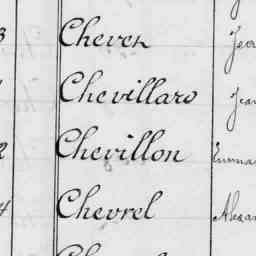 3 Cheven Jea
Chevillard Jean
2 Chevillon Emman
4 Chevrel Alexan